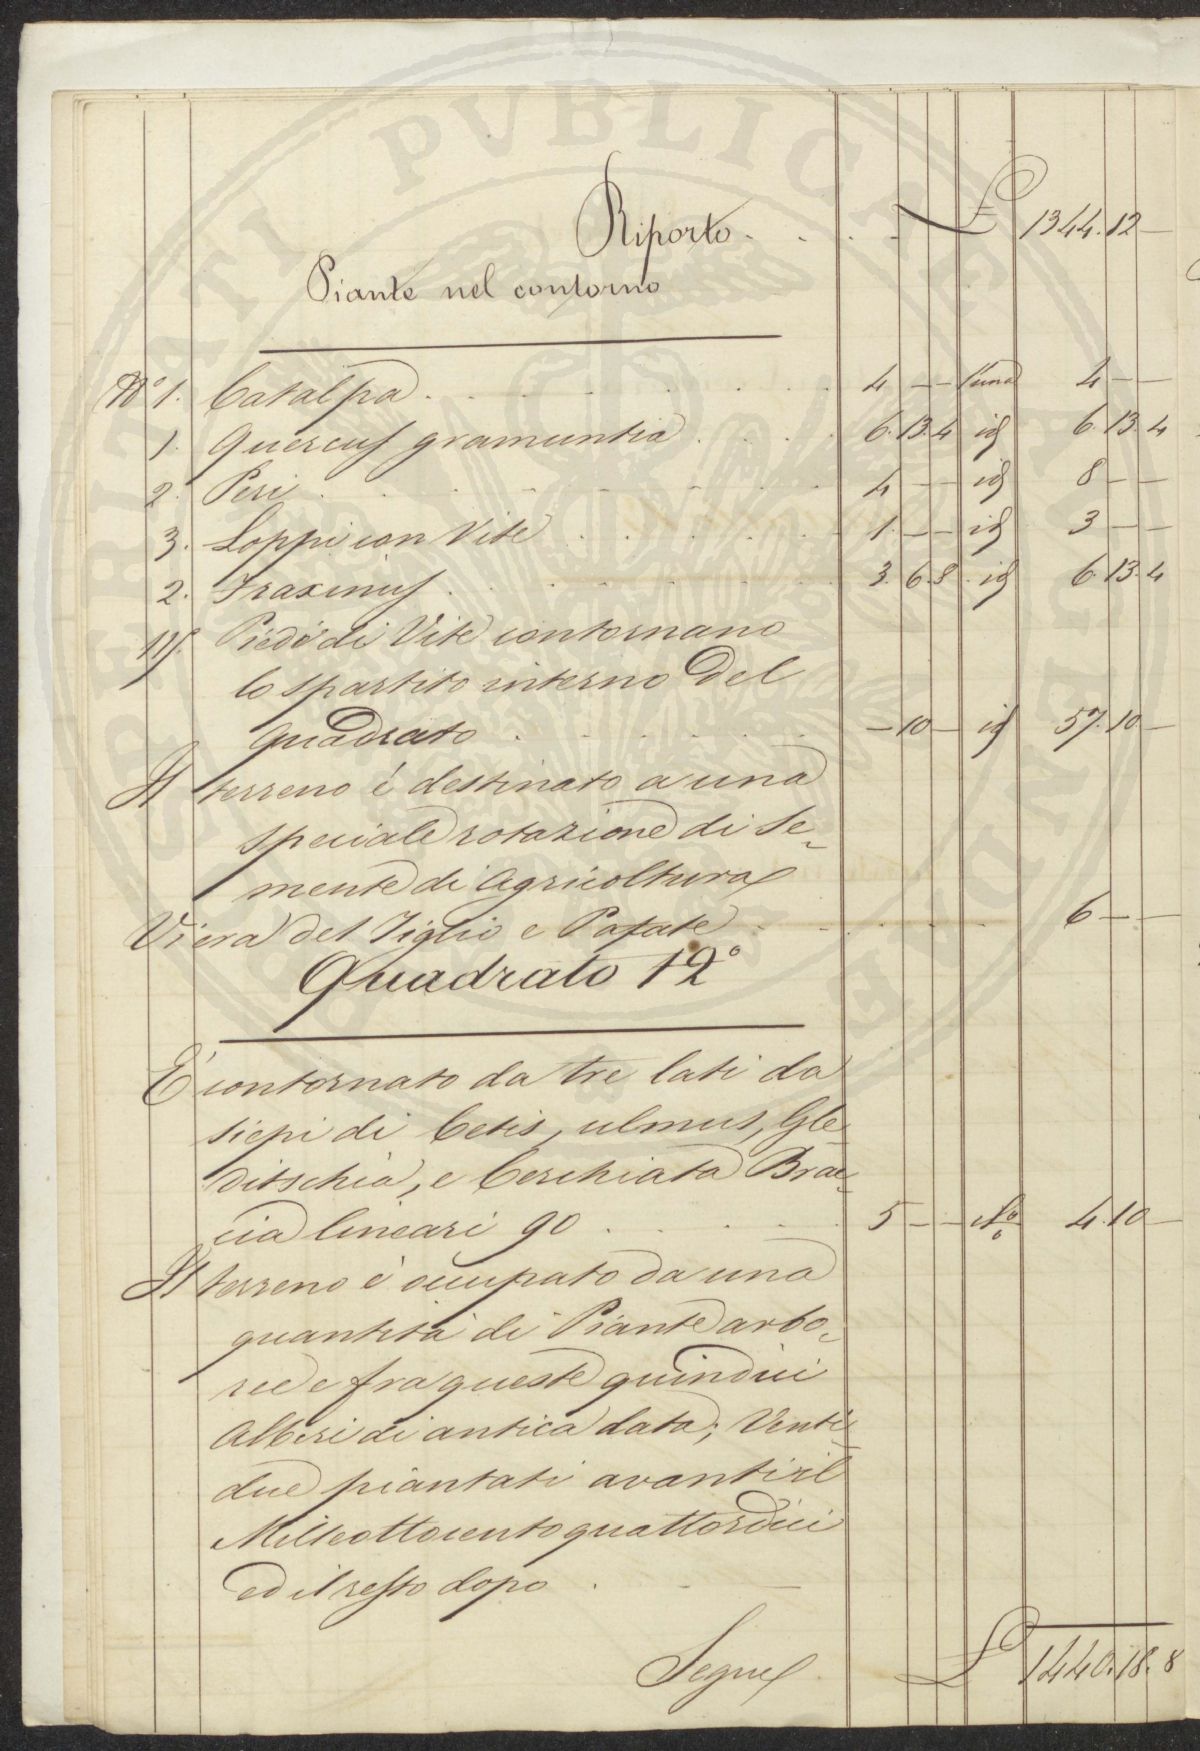 PROSPERITATI PVBLICAE AVGENDAE
Riporto . . . . £ 1344. 12 —
Piante nel contorno
N° 1. Catalpa . . . . . . . 4 — — l'una 4 — —
1. Quercus gramuntia . . . . 6. 13. 4 id 6. 13. 4
2. Peri . . . . . . . . 4 — — id 8 — —
3. Loppi con Vite . . . . . . 1. — — id 3 — —
2. Fraxinus . . . . . . . 3. 6. 8. id 6. 13. 4
115. Piedi di Vite contornano
lo spartito interno del
quadrato . . . . . . — 10 — id 57. 10 —
Il terreno è destinato a una
speciale rotazione di Se-
mente di Agricoltura
Vi era del Tiglio e Patate . . . . 6 — —
Quadrato 12°
È contornato da tre lati da
siepi di Cetis, ulmus, Gle
ditschia, e Cerchiata Brac-
cia lineari 90 . . . . . 5 — — % 4. 10 —
Il terreno è occupato da una
quantità di Piante arbo-
ree e fra queste quindici
Alberi di antica data; Venti-
due piantati avanti il
Milleottocentoquattordici
ed il resto dopo . — —
Segue £ 1440. 18. 8